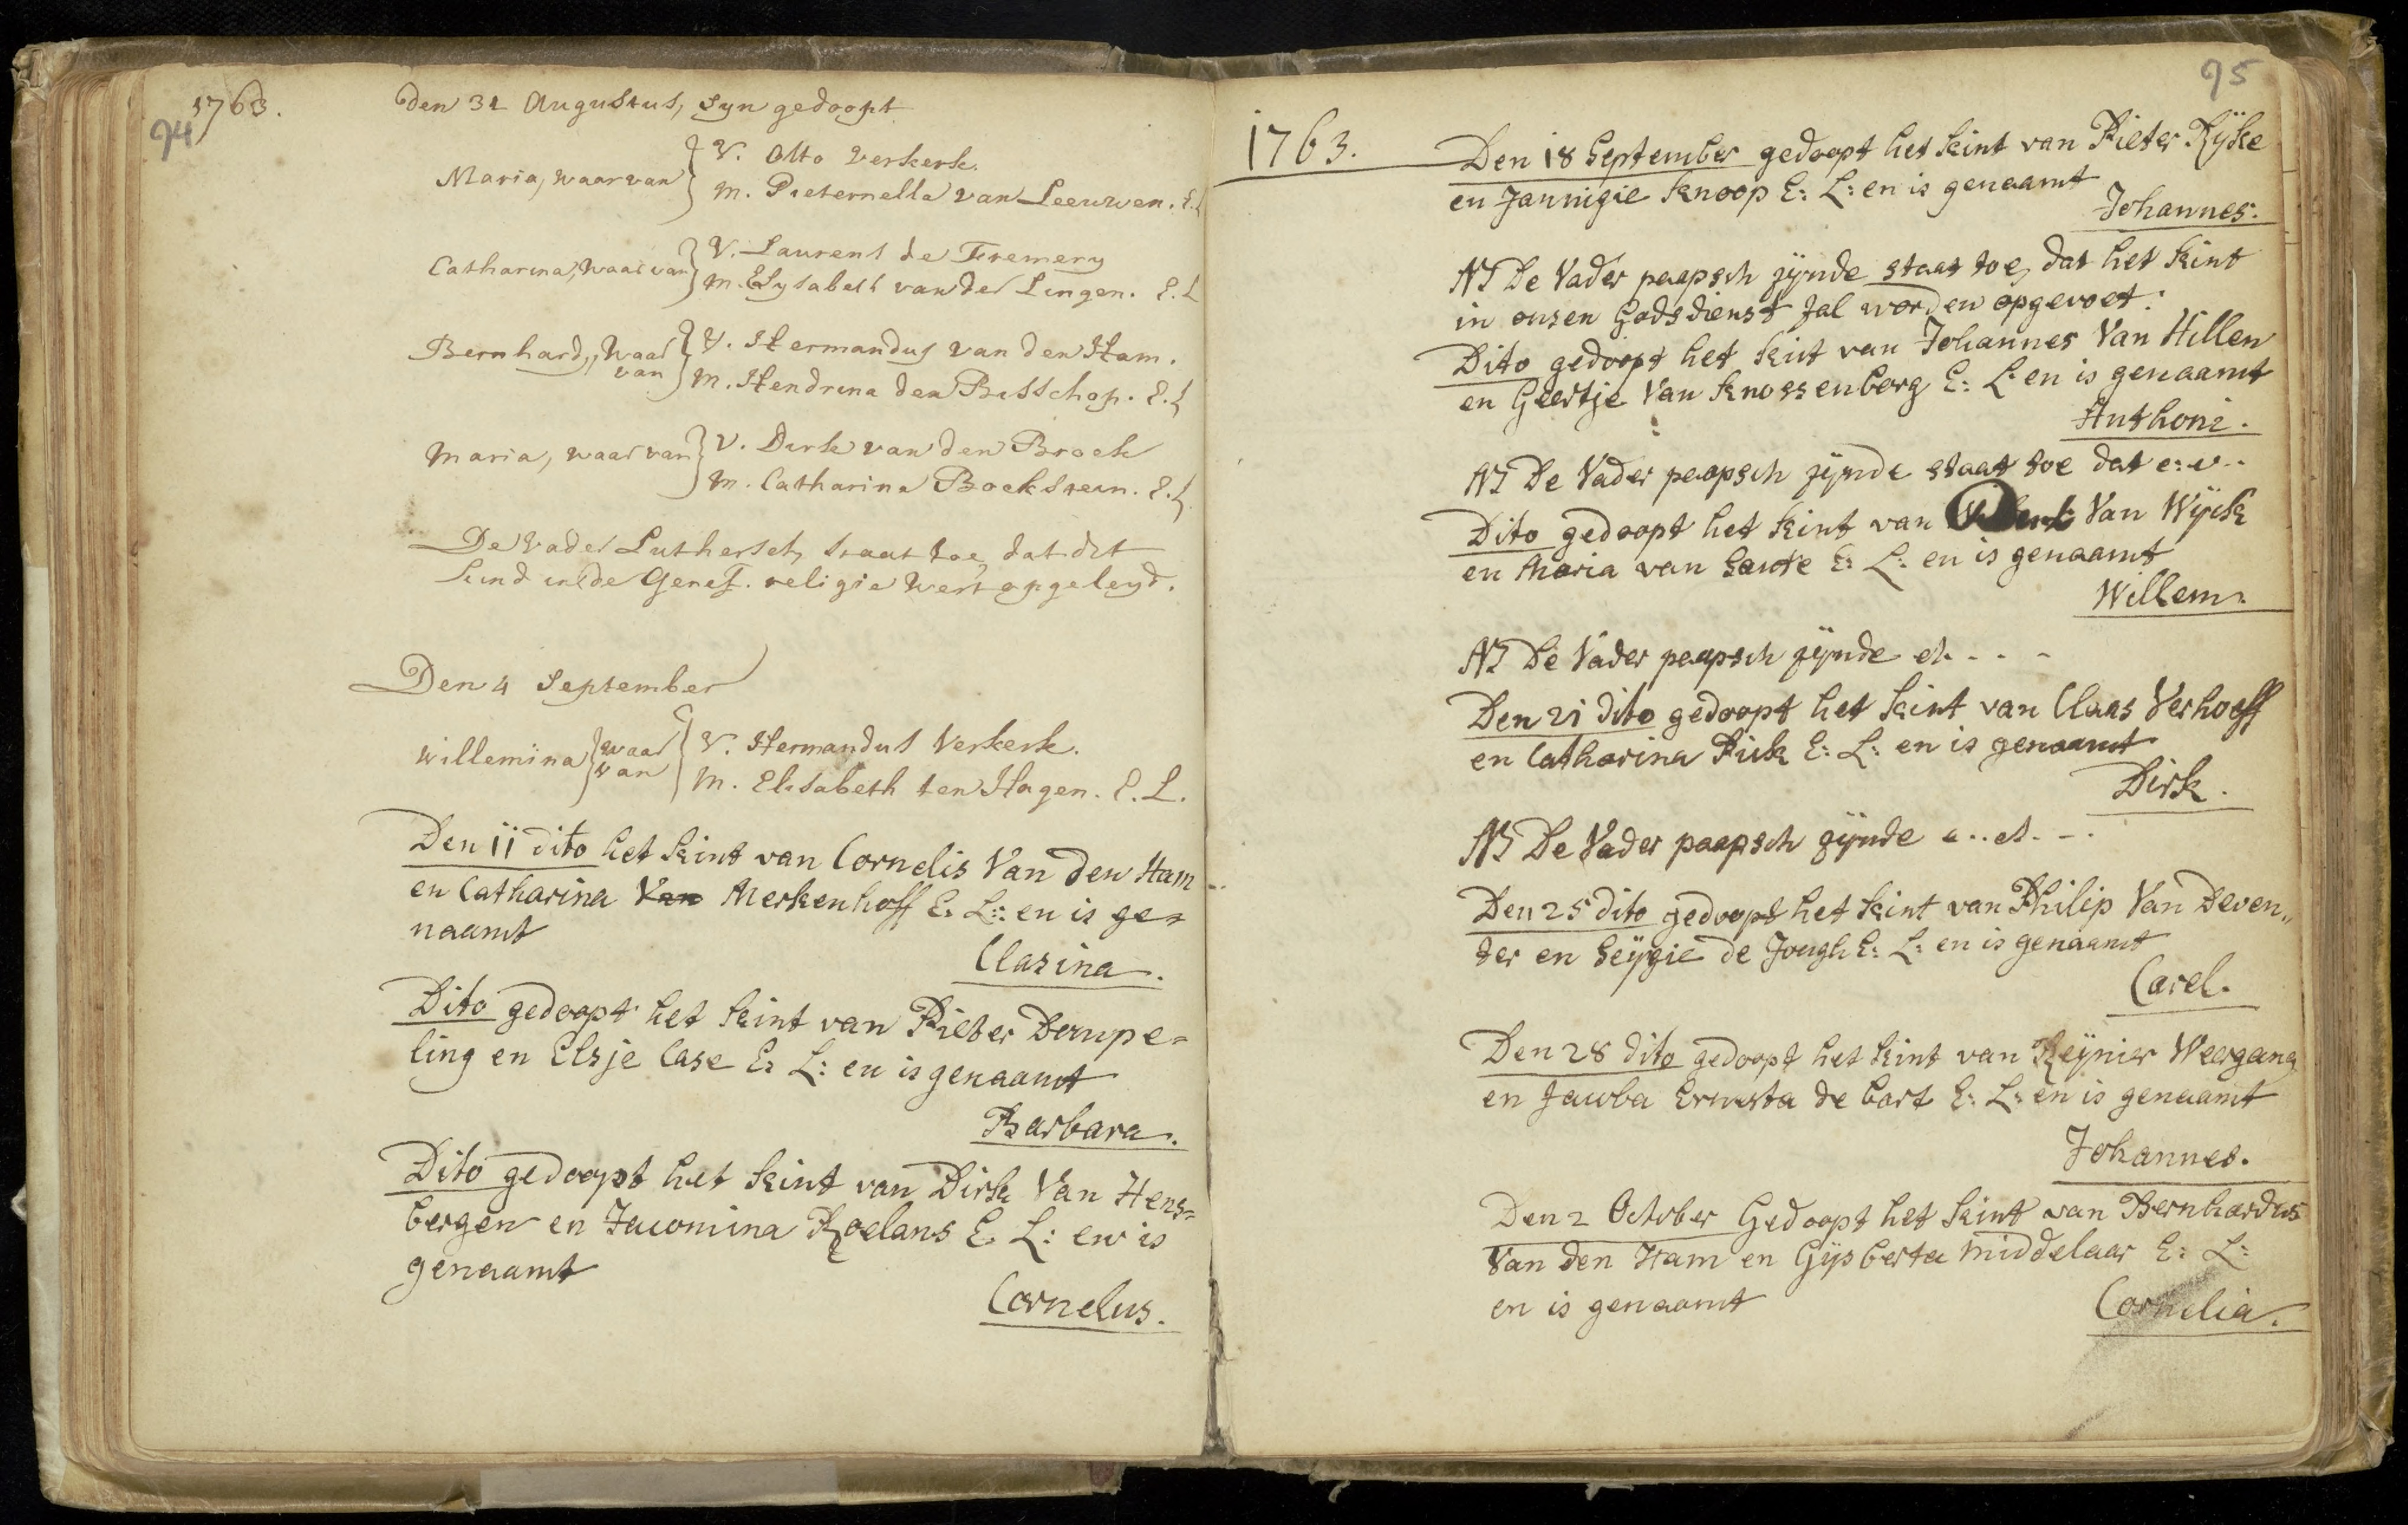 1763.
94
den 31 Augustus, syn gedoopt
Maria, waar van
V. Otto Verkerk.
M. Pieternella van Leeuwen. E.L
Catharina, waar van
V. Laurens de Fremery
M. Elysabeth van der Lingen. E.L
Bernhard, waar van
V. Hermandus van den Ham.
M. Hendrina den Bisschop. E.L
Maria, waar van
V. Dirk van den Broek
M. Catharina Boekstein. E.L
De vader Luthersch, staat toe, dat dit
kind in de Geref. religie wert opgeleyd.
Den 4 September
Willemina waar van
V. Hermandus Verkerk.
M. Elisabeth ten Hagen. E.L.
Den 11 dito het kint van Cornelis Van den Ham
en Catharina Van Merkenhoff E: L: en is ge=
naamt
Clasina.
Dito gedoopt het kint van Pieter Dompe=
ling en Elsje Case E: L: en is genaamt
Barbara.
Dito gedoopt het kint van Dirk Van Hens=
bergen en Jacomina Roelans E: L: en is
genaamt
Cornelus.
95
1763.
Den 18 September gedoopt het kint van Pieter Ryke
en Jannigie Knoop E: L: en is genaamt
Johannes.
NB De Vader paapsch zynde staat toe, dat het kint
in onsen Godsdienst zal worden opgevoet.
Dito gedoopt het kint van Johannes Van Hillen
en Geertje Van Knossenborg E: L: en is genaamt
Anthoni.
NB De Vader paapsch zynde staat toe dat e: v..
Dito gedoopt het kint van Van Wyck
en Maria van E: L: en is genaamt
Willem.
NB De Vader paapsch zynde et. - - -
Den 21 dito gedoopt het kint van Claas Verhoeff
en Catharina Pick E: L: en is genaamt
Dirk.
NB De Vader paapsch zynde e..et. - .
Den 25 dito gedoopt het kint van Philip Van Deven„
ter en Seygie de Jongh E: L: en is genaamt
Carel.
Den 28 dito gedoopt het kint van Reynier Weergang
en Jacoba Ernesta de Bart E: L: en is genaamt
Johannes.
Den 2 October Gedoopt het kint van Bernhardus
Van den Ham en Gysberta Middelaar E: L:
en is genaamt
Cornelia.